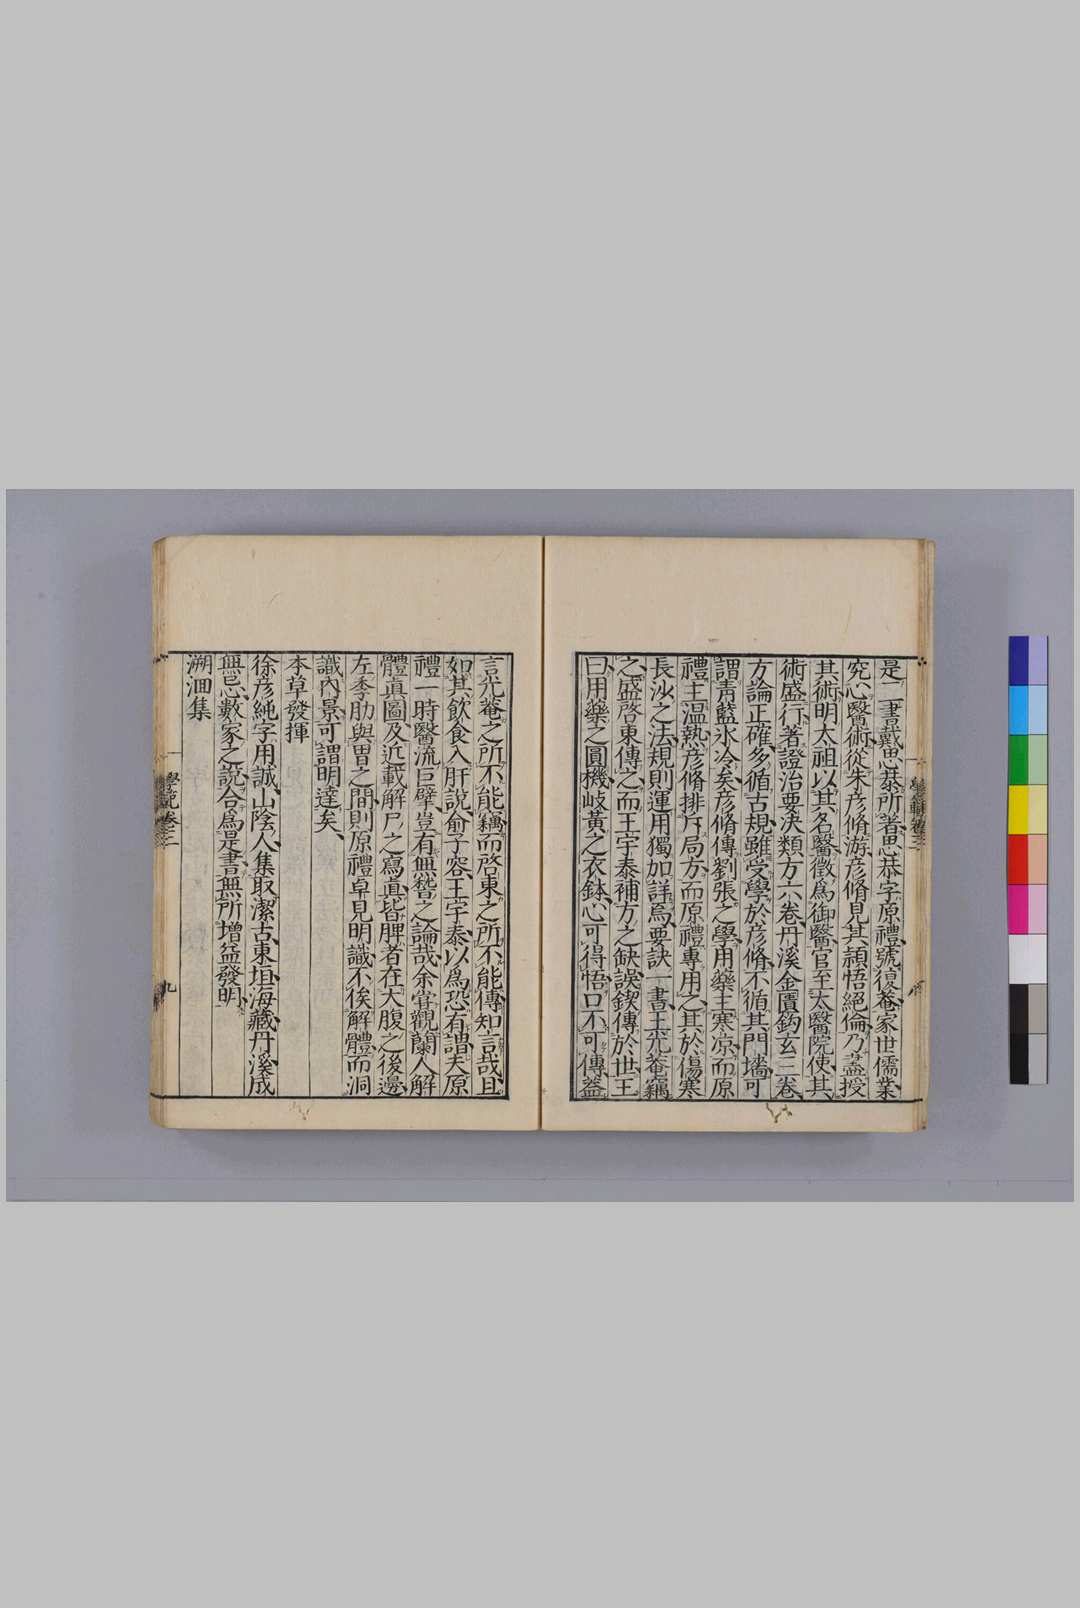 是二書戴思恭所著思恭字原禮號復菴家世儒業
究心醫術從朱彦脩游彦脩見其頴悟絕倫乃盡授
其術明太祖以其名醫徵爲御醫官至太醫院使其
術盛行著證治要決類方六卷丹溪金匱鈎玄三卷
方論正確多循古規雖受學於彦脩不循其門墻可
謂靑藍氷冷矣彦脩傳劉張之學用藥主寒凉而原
禮主溫熱彦脩排斥局方而原禮專用之其於傷寒
長沙之法規則運用獨加詳焉要訣一書王光菴竊
之盛啓東傳之而王宇泰補方之缺誤鍥傳於世王
曰用藥之圓機岐黃之衣鉢心可得悟口不可傳益
言光菴之所不能竊而啓東之所不能傳知言哉且
如其飲食入肝說俞子容王宇泰以爲恐有謂夫原
禮一時醫流巨擘豈有無稽之論哉余甞觀蘭人解
體眞圖及近載解尸之寫眞皆脾者在大腹之後邊
左季肋與胃之間則原禮卓見明識不俟解體而洞
識內景可謂明達矣
本草發揮
徐彦純字用誠山陰人集取潔古東垣海藏丹溪成
無忌數家之說合爲是書無所增益發明
溯洄集
學範卷二
九